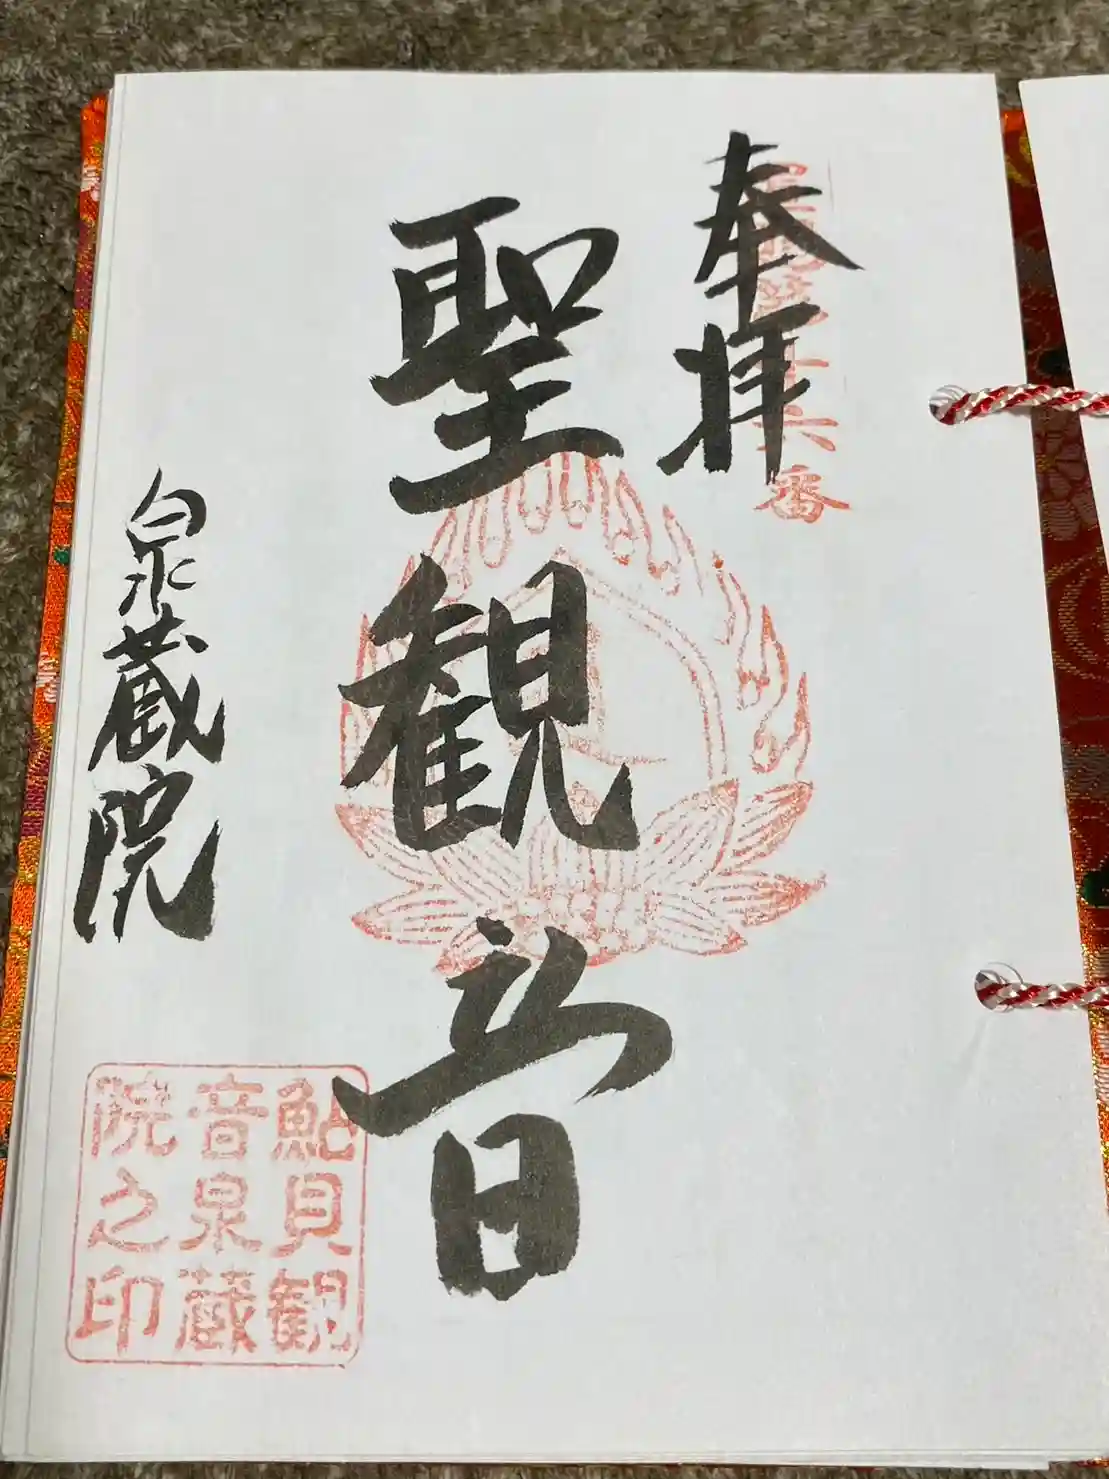 奉拝
六番
聖観音
泉蔵院
鮎貝観
音泉蔵
院之印